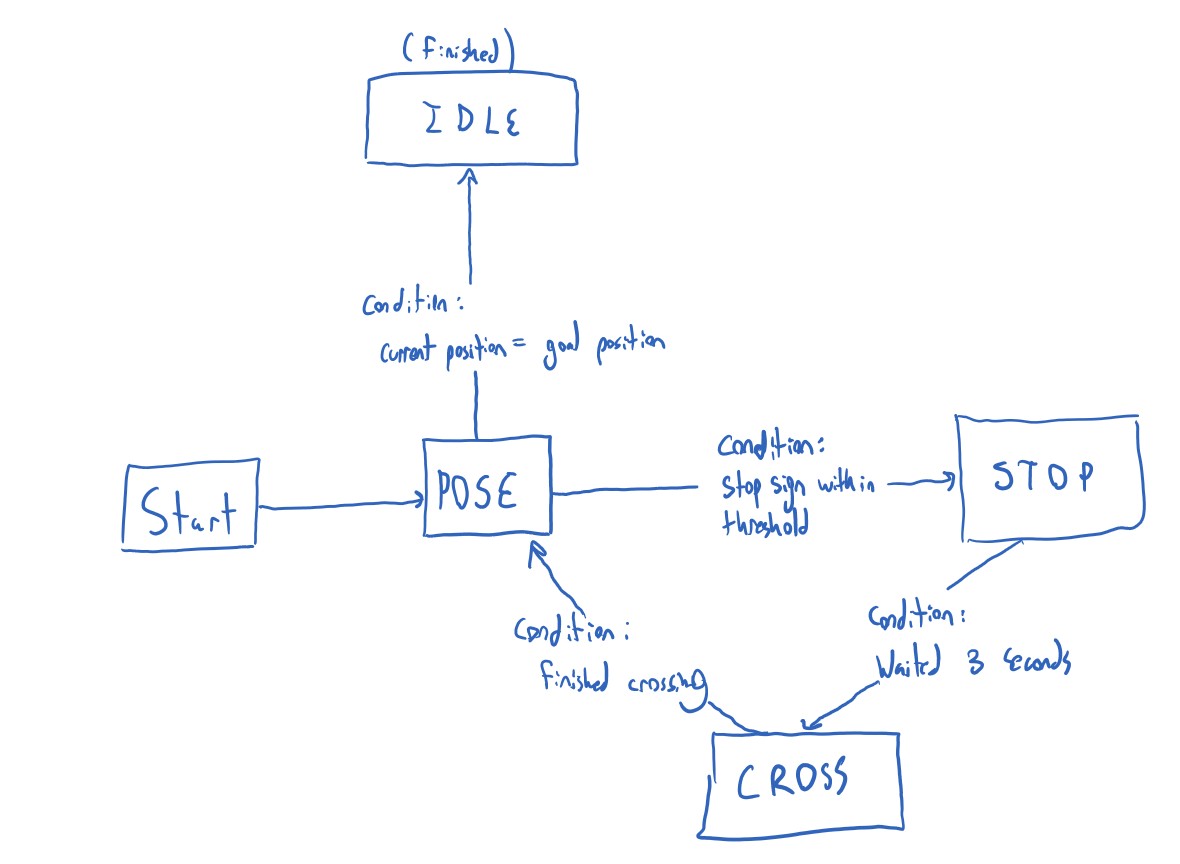 (finished)
IDLE
Condition:
current position = goal position
Start
POSE
Condition:
Stop sign within
threshold
STOP
Condition:
Waited 3 seconds
Condition:
finished crossing
CROSS